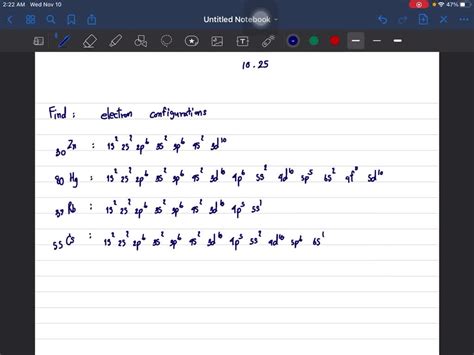 2:22 AM Wed Nov 10 47%
Untitled Notebook
10.25
Find : electron configurations
₃₀Zn : 1s² 2s² 2p⁶ 3s² 3p⁶ 4s² 3d¹⁰
₈₀Hg : 1s² 2s² 2p⁶ 3s² 3p⁶ 4s² 3d¹⁰ 4p⁶ 5s² 4d¹⁰ 5p⁵ 6s² 5d¹⁰
₃₇Rb : 1s² 2s² 2p⁶ 3s² 3p⁶ 4s² 3d¹⁰ 4p³ 5s¹
₅₅Cs : 1s² 2s² 2p⁶ 3s² 3p⁶ 4s² 3d¹⁰ 4p³ 5s² 4d¹⁰ 5p⁶ 6s¹